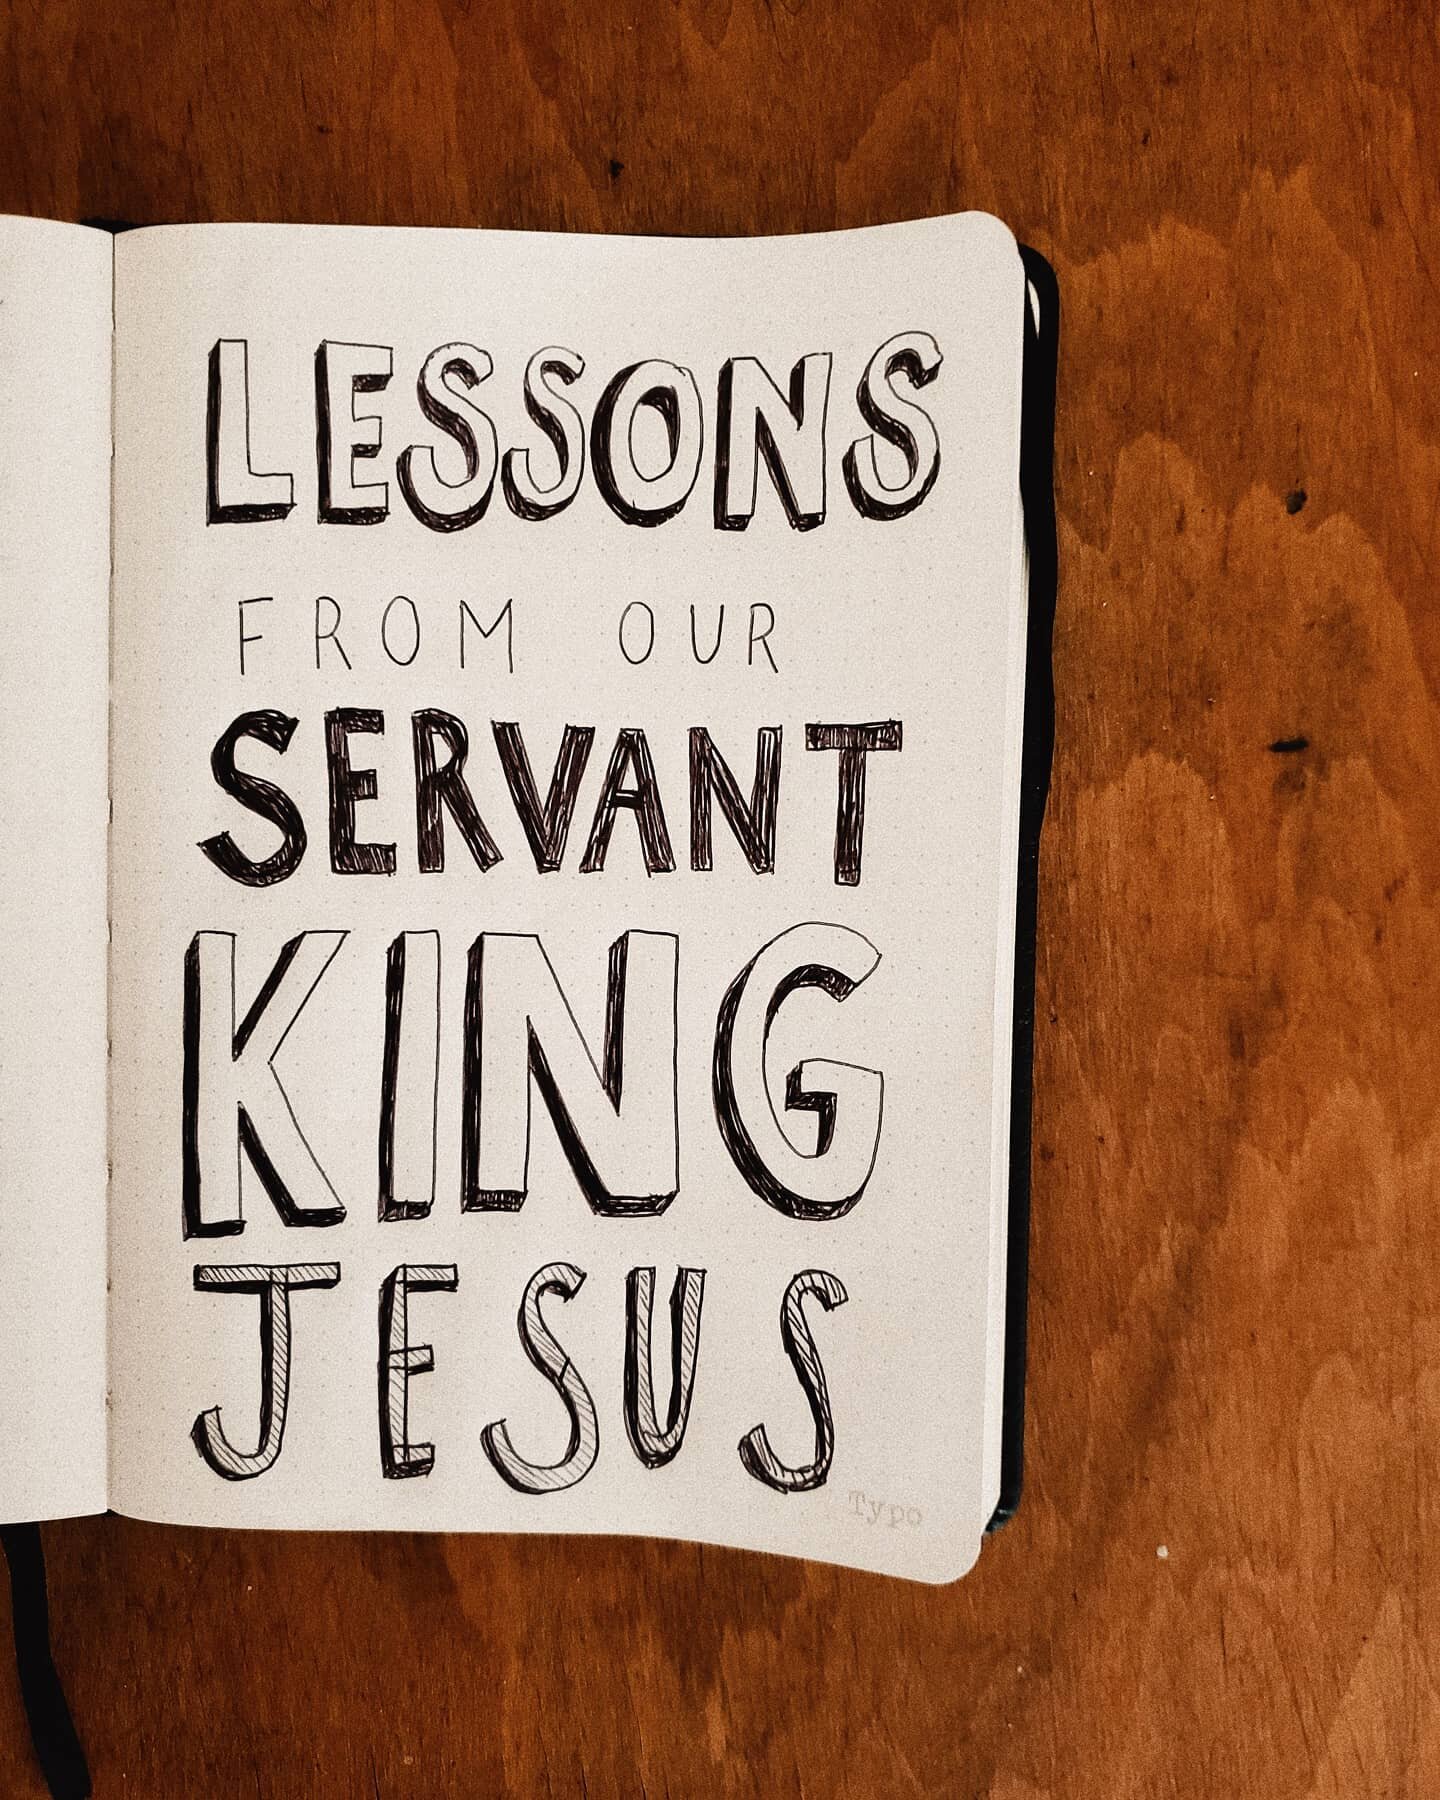 LESSONS
FROM OUR
SERVANT
KING
JESUS
Typo